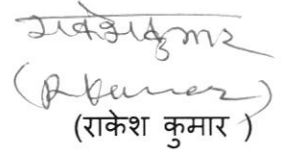 राकेशकुमार
(RKumar)
(राकेश कुमार )